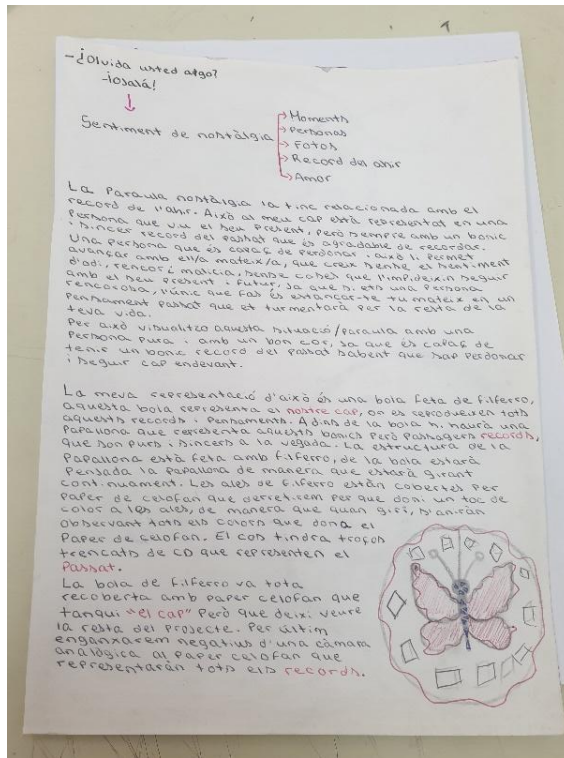 -¿Olvida usted algo?
-¡ojalá!
Sentiment de nostàlgia
Moments
Personas
Fotos
Record del ahir
Amor
La Paraula nostàlgia la tinc relacionada amb el
record de l'ahir. Això al meu cap està representat en una
Persona que viu el seu Present, Però sempre amb un bonic
i sincer record del passat que és agradable de recordar.
Una persona que és capaç de Perdonar i això li permet
avançar amb ell/a mateix/a, que creix sense el sentiment
d'odi, rencor i malicia, sense coses que l'impideixin seguir
amb el seu present i futur, ja que si ets una Persona
rencorosa, l'únic que fas és estancar-te tu mateix en un
Pensament passat que et turmentarà per la resta de la
teva vida.
Per això visualitzo aquesta situació/paraula amb una
Persona pura i amb un bon cor, ja que és capaç de
tenir un bonic record del passat sabent que sap Perdonar
i seguir cap endevant.
La meva representació d'això és una bola feta de filferro,
aquesta bola representa el nostre cap, on es reprodueixen tots
aquests records i Pensaments. A dins de la bola hi haurà una
Papallona que representa aquests bonics Però Passagers records,
que son purs i sincers a la vegada. La estructura de la
Papallona està feta amb filferro, de la bola estarà
Penjada la papallona de manera que estarà girant
continuament. Les ales de filferro estàn cobertes per
Paper de celofan que derretirem per que doni un toc de
color a les ales, de manera que quan giri, s'aniràn
observant tots els colors que dona el
Paper de celofan. El cos tindra troços
trencats de CD que representen el
Passat.
La bola de filferro va tota
recoberta amb paper celofan que
tanqui "el cap" Però que deixi veure
la resta del Projecte. Per últim
enganxarem negatius d'una càmara
analògica al Paper celofan que
representaràn tots els records.